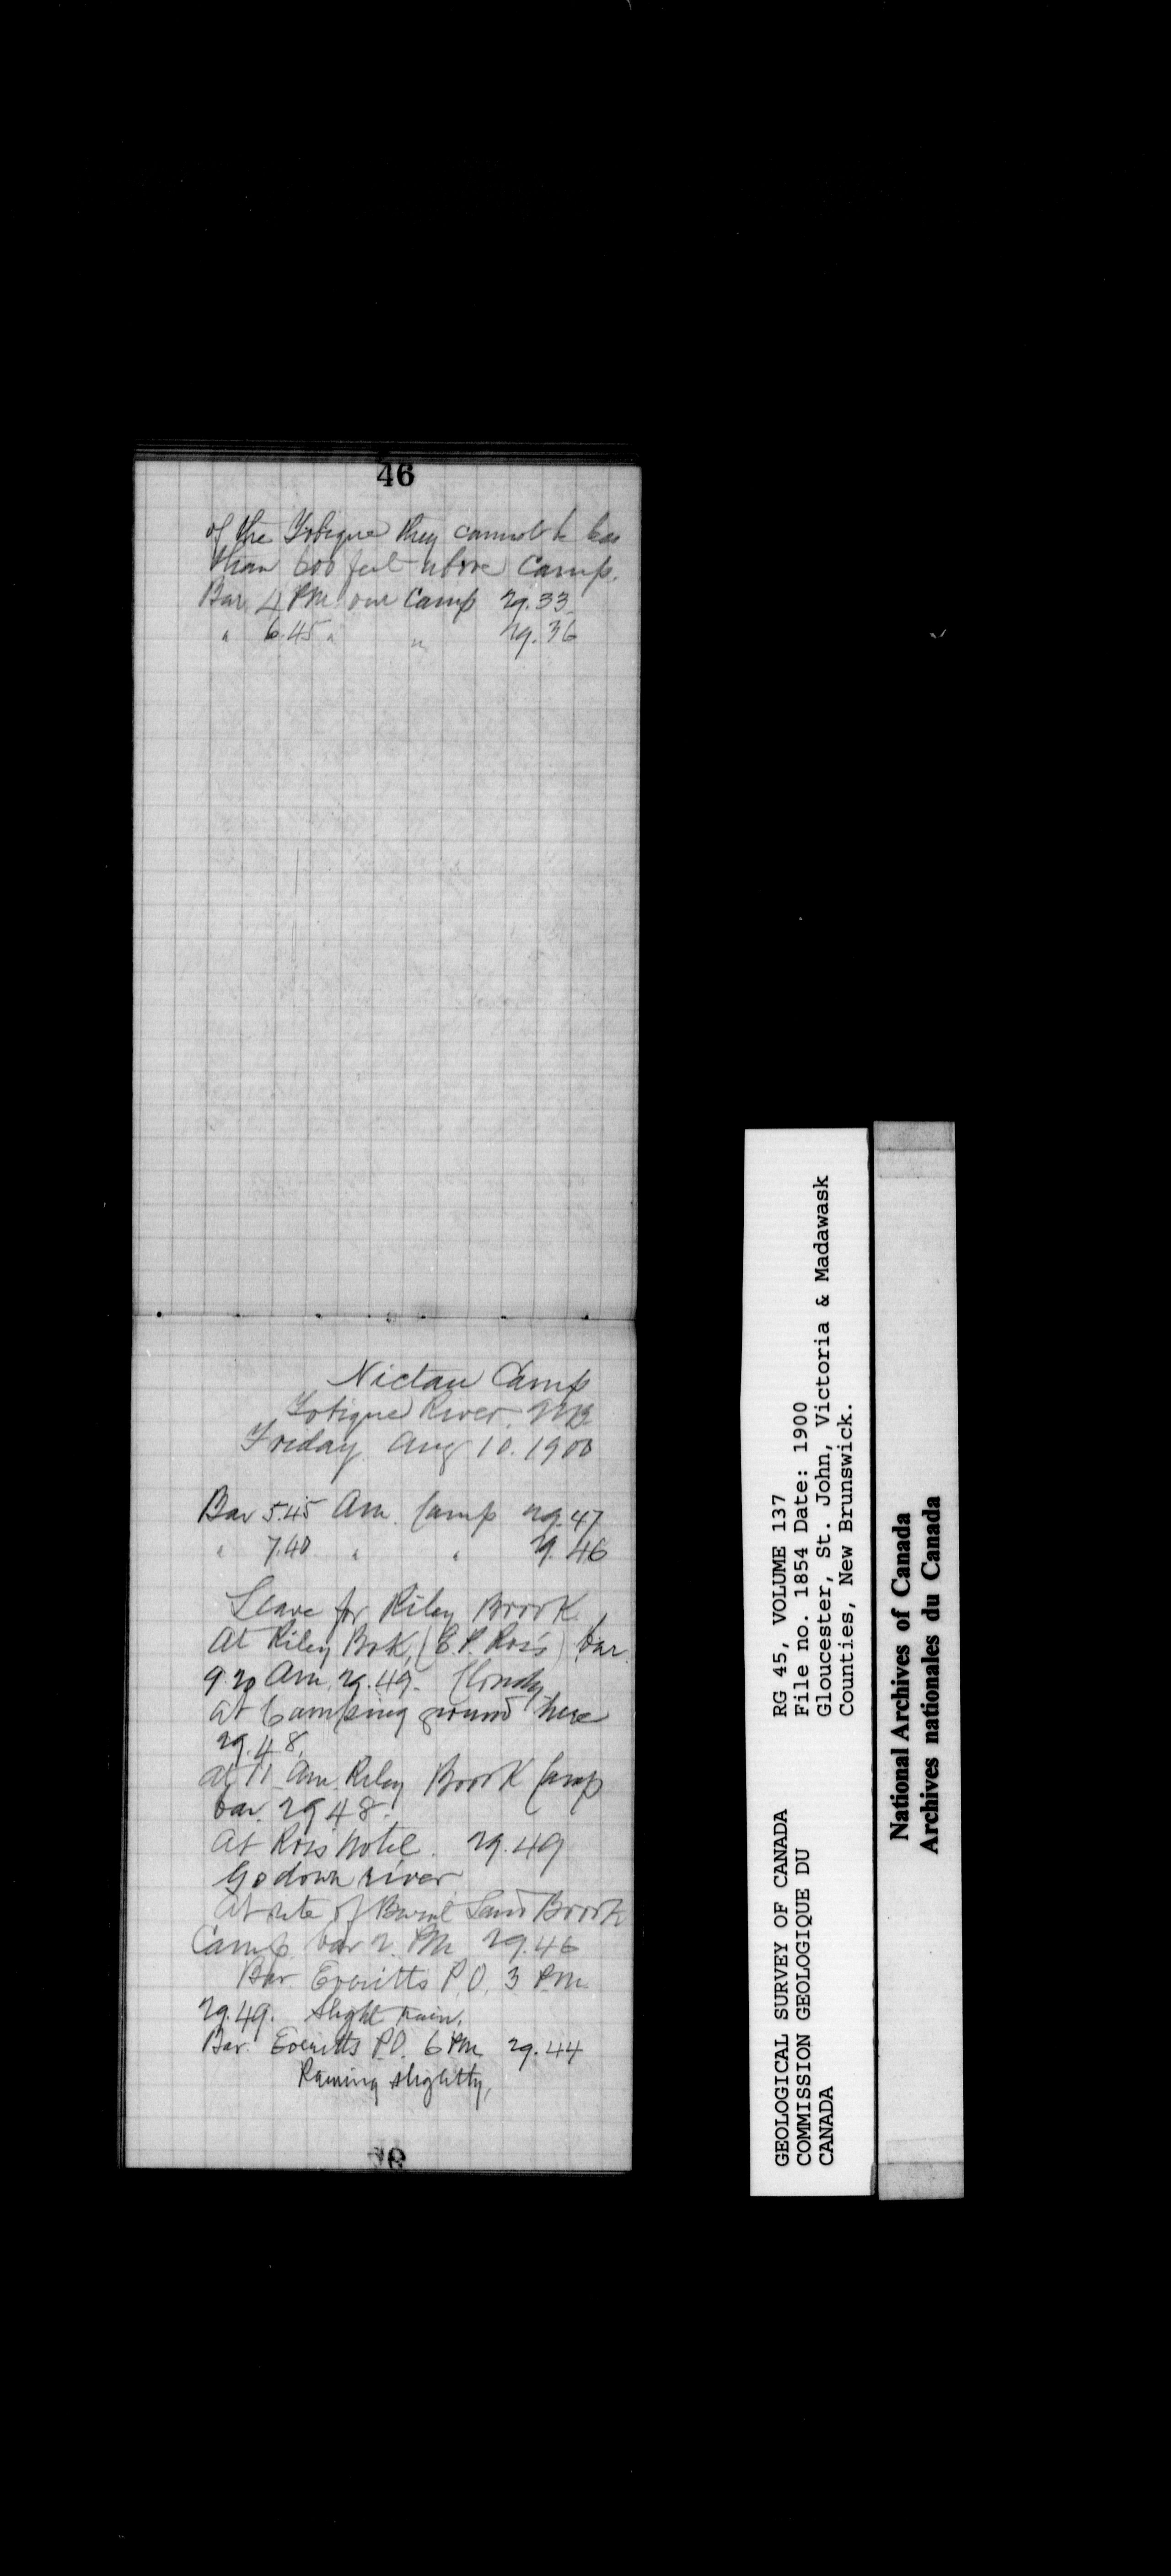 46
of the Tobique they cannot be less
than 600 feet above Camp.
Bar. 4 PM our Camp 29.33
" 6.45 " " 29.36
Nictau Camp
Tobique River. NB
Friday Aug 10. 1900
Bar 5.45 Am. Camp 29.47
" 7.40 " " 29.46
Leave for Riley Brook.
At Riley Brk, (E.P. Ross) bar.
9.20 Am. 29.49. Cloudy
At Camping ground here
29.48.
At 11 Am. Riley Brook Camp
bar. 29 48.
At Ross hotel. 29.49
Go down river
At site of Burnt Land Brook
Camp. bar 2. PM 29.46
Bar Everitts P.O. 3 PM
29.49. Slight rain.
Bar. Everitts P.O. 6 PM 29.44
Raining slightly,
GEOLOGICAL SURVEY OF CANADA RG 45, VOLUME 137
COMMISSION GEOLOGIQUE DU File no. 1854 Date: 1900
CANADA Gloucester, St. John, Victoria & Madawask
Counties, New Brunswick.
National Archives of Canada
Archives nationales du Canada